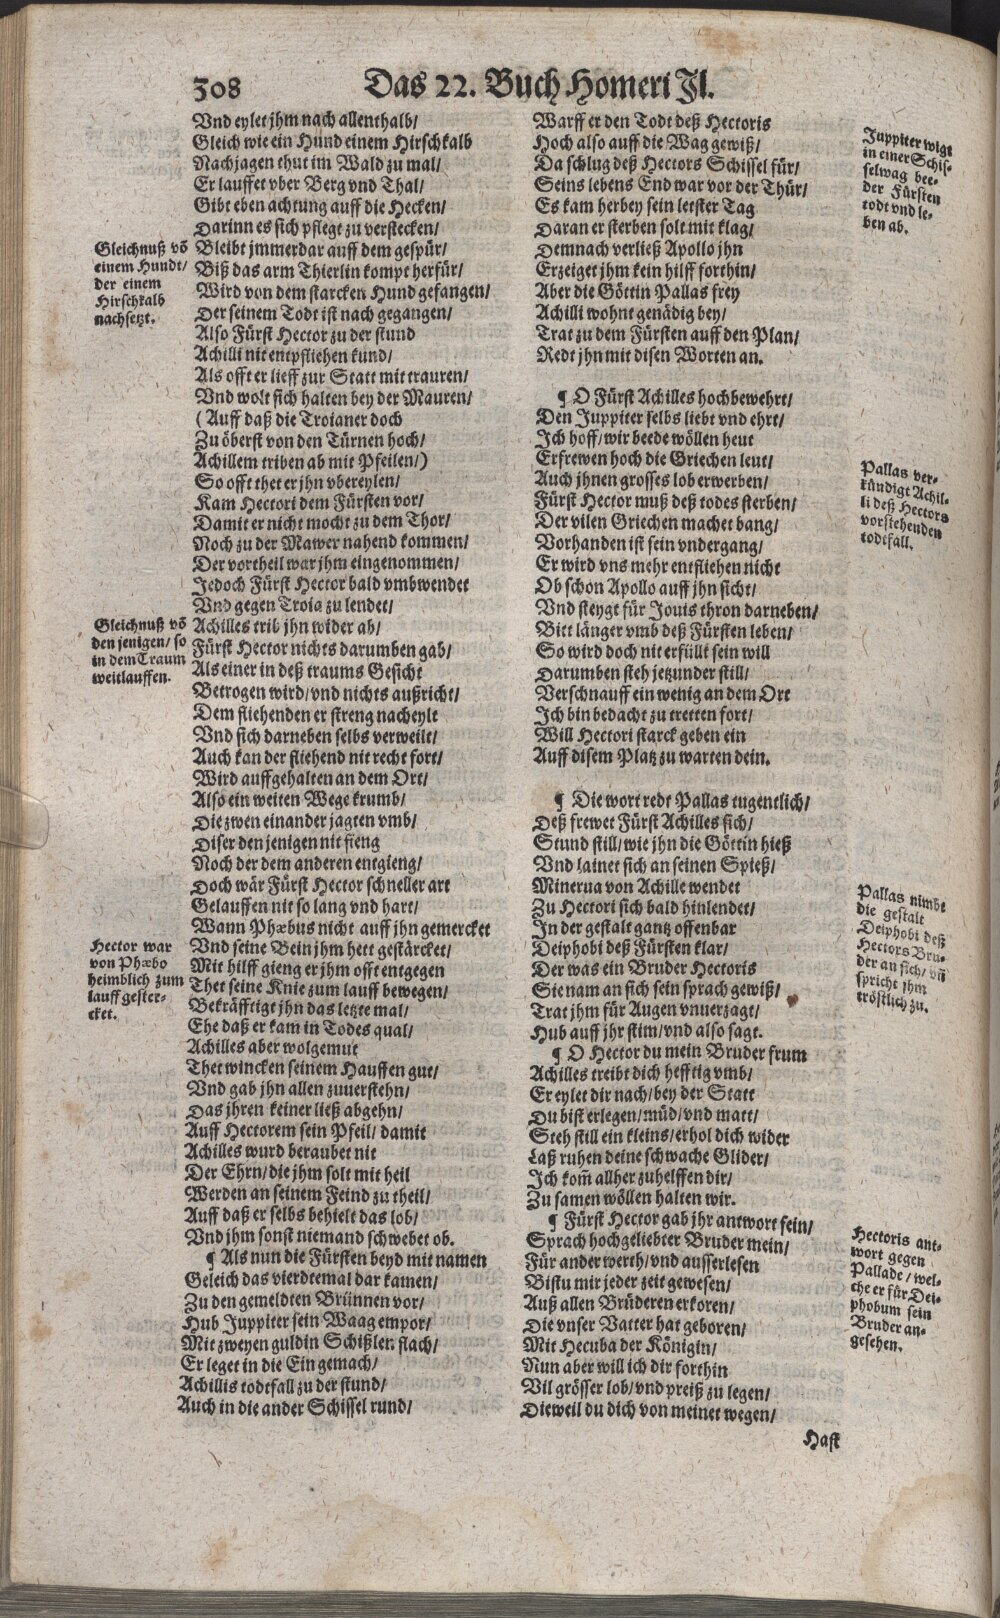 308
Das 22. Buch Homeri Il.
Vnd eylet jhm nach allenthalb/
Gleich wie ein Hund einem Hirschkalb
Nachjagen thut im Wald zu mal/
Er lauffet vber Berg vnd Thal/
Gibt eben achtung auff die Hecken/
Darinn es sich pflegt zu verstecken/
Bleibt jmmerdar auff dem gespür/
Biß das arm Thierlin kompt herfür/
Wird von dem starcken Hund gefangen/
Der seinem Todt ist nach gegangen/
Also Fürst Hector zu der stund
Achilli nit entpfliehen kund/
Als offt er lieff zur Statt mit trauren/
Vnd wolt sich halten bey der Mauren/
(Auff daß die Troianer doch
Zu öberst von den Türnen hoch/
Achillem triben ab mit Pfeilen/)
So offt thet er jhn vbereylen/
Kam Hectori dem Fürsten vor/
Damit er nicht mocht zu dem Thor/
Noch zu der Mawer nahend kommen/
Der vortheil war jhm eingenommen/
Jedoch Fürst Hector bald vmbwendet
Vnd gegen Troia zu lendet/
Achilles trib jhn wider ab/
Fürst Hector nichts darumben gab/
Als einer in deß traums Gesicht
Betrogen wird/vnd nichts außricht/
Dem fliehenden er streng nacheylt
Vnd sich darneben selbs verweilt/
Auch kan der fliehend nit recht fort/
Wird auffgehalten an dem Ort/
Also ein weiten Wege krumb/
Die zwen einander jagten vmb/
Diser den jenigen nit fieng
Noch der dem anderen entgieng/
Doch wär Fürst Hector schneller art
Gelauffen nit so lang vnd hart/
Wann Phæbus nicht auff jhn gemercket
Vnd seine Bein jhm hett gestärcket/
Mit hilff gieng er jhm offt entgegen
Thet seine Knie zum lauff bewegen/
Bekräfftigt jhn das letzte mal/
Ehe daß er kam in Todes qual/
Achilles aber wolgemut
Thet wincken seinem Hauffen gut/
Vnd gab jhn allen zuuerstehn/
Das jhren keiner ließ abgehn/
Auff Hectorem sein Pfeil/ damit
Achilles wurd beraubet nit
Der Ehrn/die jhm solt mit heil
Werden an seinem Feind zu theil/
Auff daß er selbs behielt das lob/
Vnd jhm sonst niemand schwebet ob.
¶ Als nun die Fürsten beyd mit namen
Geleich das vierdtemal dar kamen/
Zu den gemeldten Brünnen vor/
Hub Juppiter sein Waag empor/
Mit zweyen guldin Schißlen flach/
Er leget in die Ein gemach/
Achillis todtfall zu der stund/
Auch in die ander Schissel rund/
Gleichnuß võ
einem Hundt/
der einem
Hirschkalb
nachsetzt.
Gleichnuß võ
den jenigen/ so
in dem Traum
weitlauffen.
Hector war
von Phæbo
heimblich zum
lauff gester-
cket.
Warff er den Todt deß Hectoris
Hoch also auff die Wag gewiß/
Da schlug deß Hectors Schissel für/
Seins lebens End war vor der Thür/
Es kam herbey sein letster Tag
Daran er sterben solt mit klag/
Demnach verließ Apollo jhn
Erzeiget jhm kein hilff forthin/
Aber die Göttin Pallas frey
Achilli wohnt genädig bey/
Trat zu dem Fürsten auff den Plan/
Redt jhn mit disen Worten an.
¶ O Fürst Achilles hochbewehrt/
Den Juppiter selbs liebt vnd ehrt/
Ich hoff/wir beede wöllen heut
Erfrewen hoch die Griechen leut/
Auch jhnen grosses lob erwerben/
Fürst Hector muß deß todes sterben/
Der vilen Griechen machet bang/
Vorhanden ist sein vndergang/
Er wird vns mehr entfliehen nicht
Ob schon Apollo auff jhn sicht/
Vnd steygt für Jouis thron darneben/
Bitt länger vmb deß Fürsten leben/
So wird doch nit erfüllt sein will
Darumben steh jetzunder still/
Verschnauff ein wenig an dem Ort
Ich bin bedacht zu tretten fort/
Will Hectori starck geben ein
Auff disem Platz zu warten dein.
¶ Die wort redt Pallas tugentlich/
Deß frewet Fürst Achilles sich/
Stund still/wie jhn die Göttin hieß
Vnd lainet sich an seinen Spieß/
Minerua von Achille wendet
Zu Hectori sich bald hinlendet/
In der gestalt gantz offenbar
Deiphobi deß Fürsten klar/
Der was ein Bruder Hectoris
Sie nam an sich sein sprach gewiß/
Trat jhm für Augen vnuerzagt/
Hub auff jhr stim/vnd also sagt.
¶ O Hector du mein Bruder frum
Achilles treibt dich hefftig vmb/
Er eylet dir nach/bey der Statt
Du bist erlegen/müd/vnd matt/
Steh still ein kleins/erhol dich wider
Laß ruhen deine schwache Glider/
Ich kom̃ allher zuhelffen dir/
Zu samen wöllen halten wir.
¶ Fürst Hector gab jhr antwort sein/
Sprach hochgeliebter Bruder mein/
Für ander werth/vnd ausserlesen
Bistu mir jeder zeit gewesen/
Auß allen Brüderen erkoren/
Die vnser Vatter hat geboren/
Mit Hecuba der Königin/
Nun aber will ich dir forthin
Vil grösser lob/vnd preiß zu legen/
Dieweil du dich von meinet wegen/
Hast
Juppiter wigt
in einer Schis-
selwag bee-
der Fürsten
todt vnd le-
ben ab.
Pallas ver-
kündigt Achil-
li deß Hectors
vorstehenden
todtfall.
Pallas nimbt
die gestalt
Deiphobi deß
Hectors Bru-
der an sich/ vñ
spricht jhm
tröstlich zu.
Hectoris ant-
wort gegen
Pallade/ wel-
che er für Dei-
phobum sein
Bruder an-
gesehen.